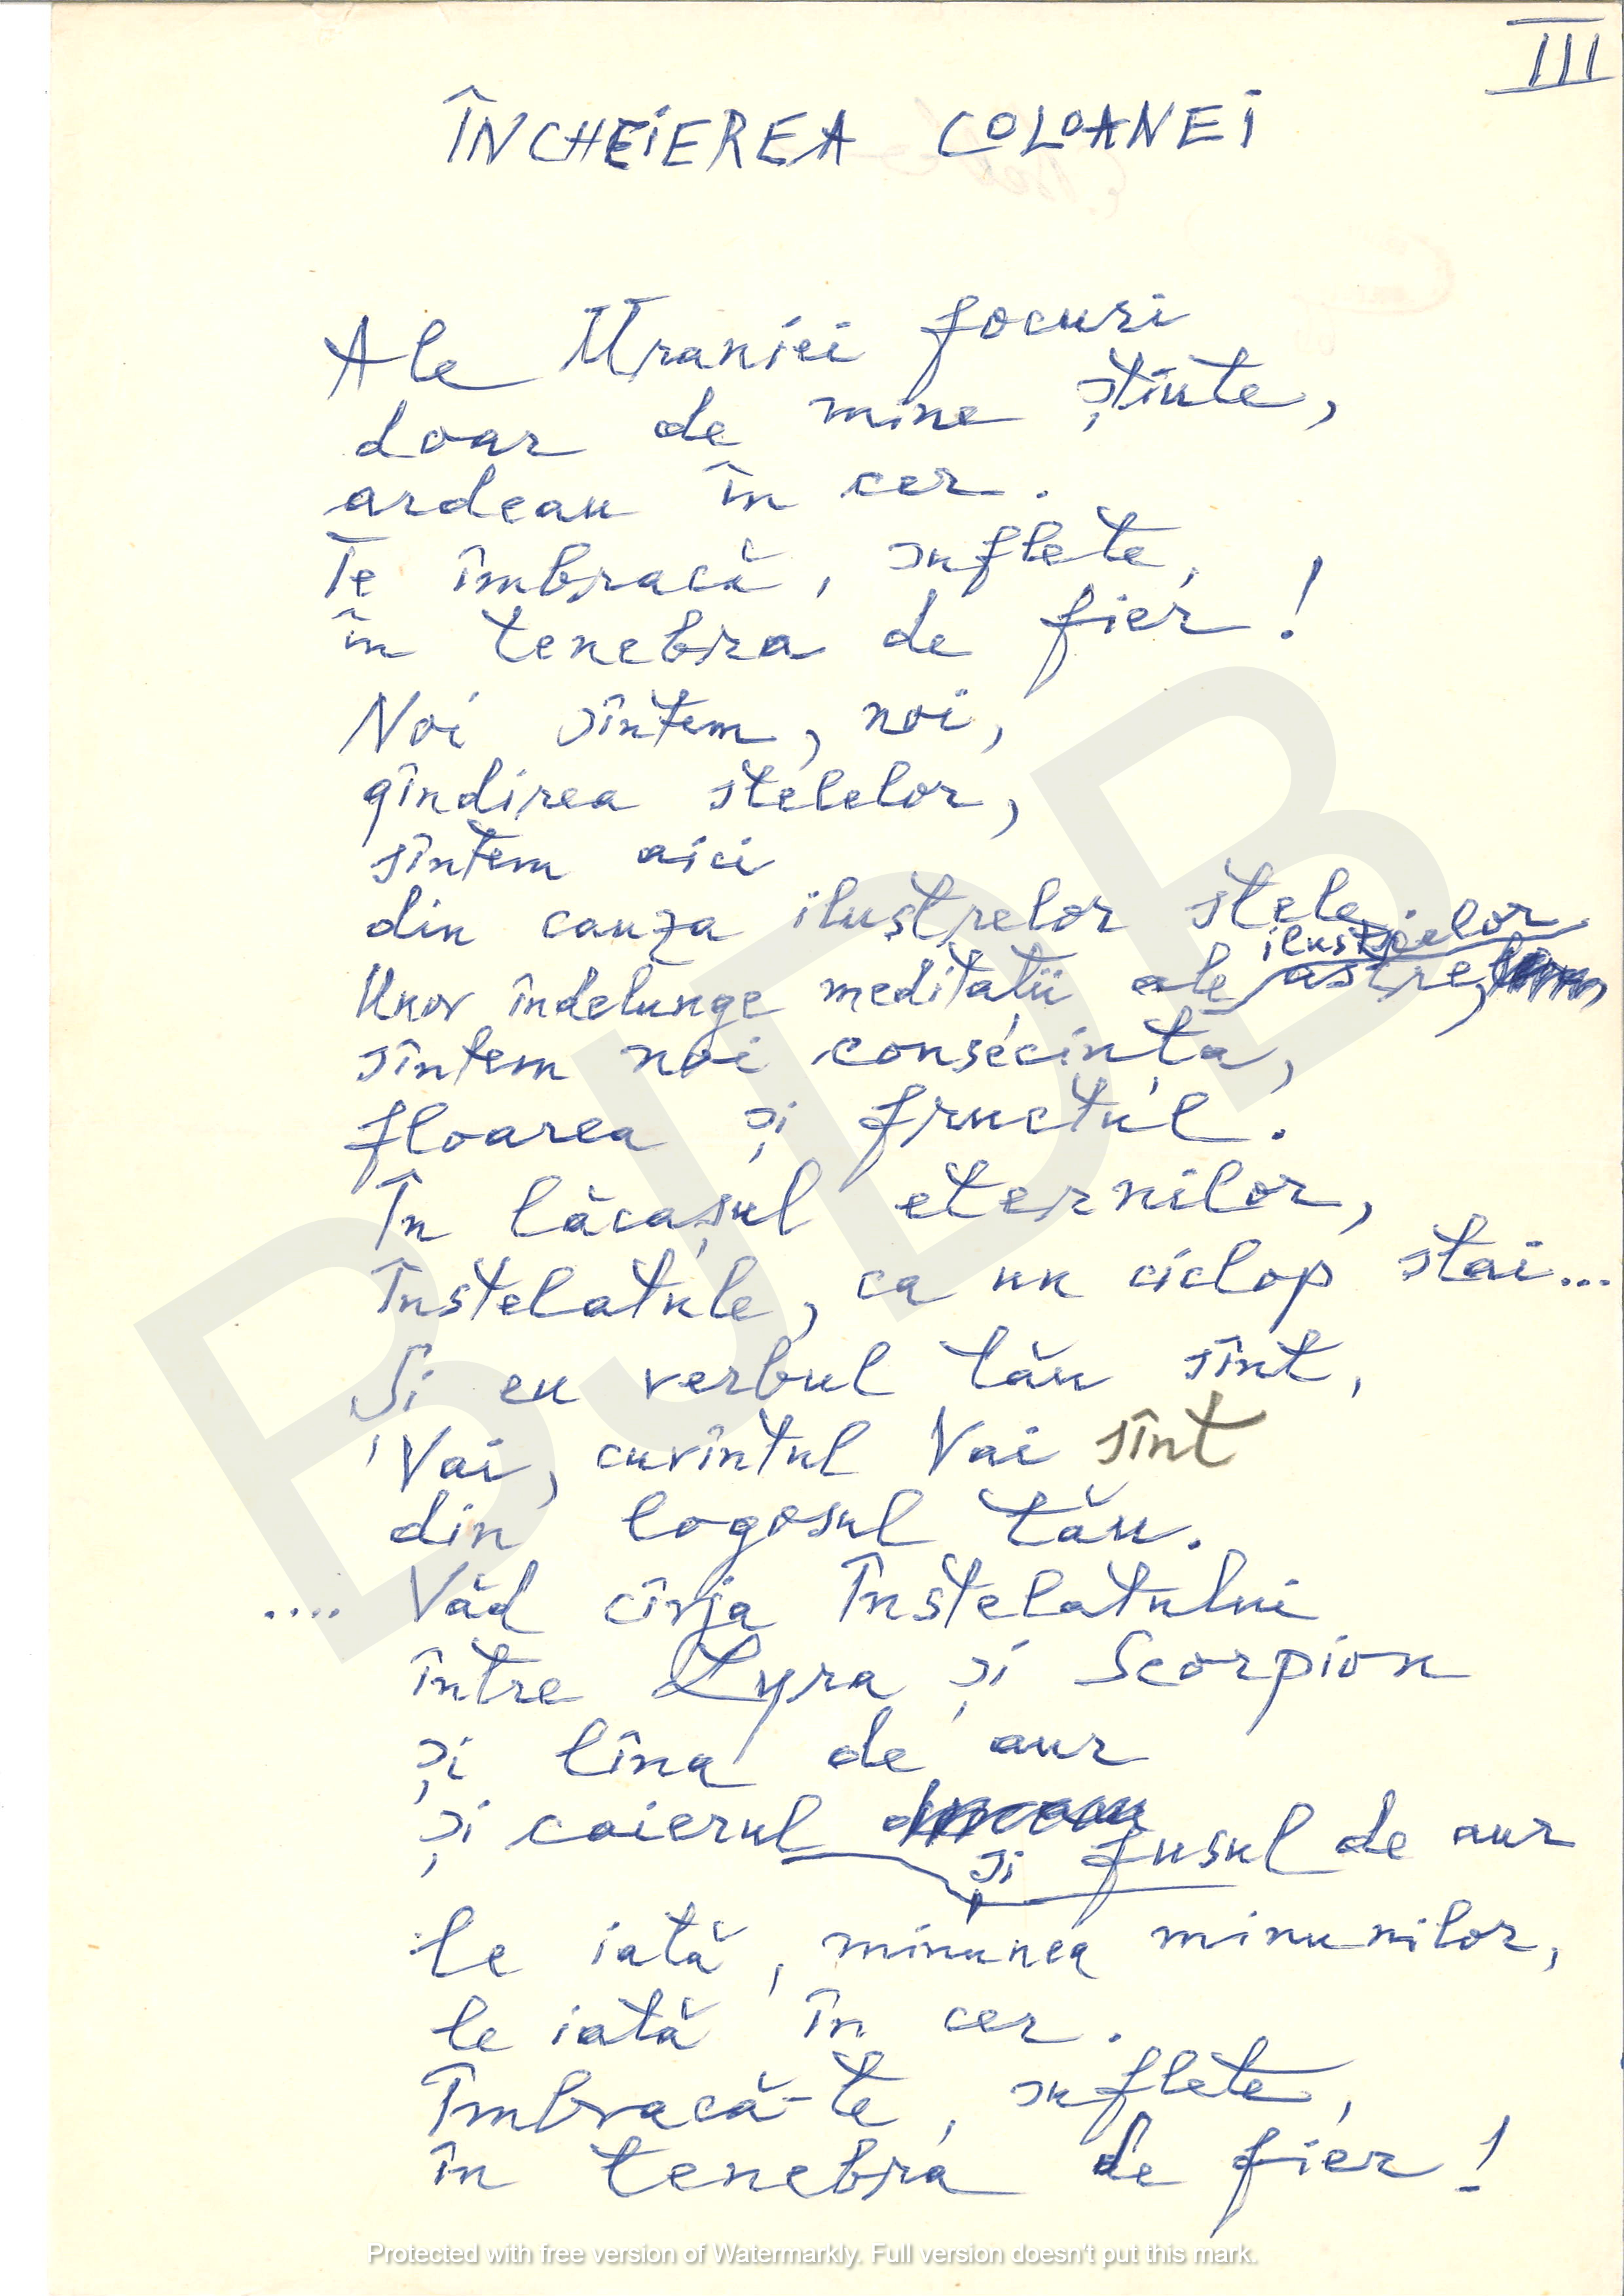 III
ÎNCHEIEREA COLOANEI
Ale Uraniei focuri
doar de mine știute,
ardeau în cer.
Te îmbracă, suflete,
în tenebra de fier!
Noi sîntem, noi,
gîndirea stelelor,
sîntem aici
din cauza ilustrelor stele
Unor îndelunge meditații ale ilustrelor astre,
sîntem noi consecința,
floarea și fructul.
În lăcașul eternilor,
Înstelatule, ca un ciclop stai...
Și eu verbul tău sînt,
Vai, cuvîntul Vai sînt
din logosul tău.
.... Văd cîrja Înstelatului
între Lyra și Scorpion
și lîna de aur
și caierul și fusul de aur
le iată, minunea minunilor,
le iată în cer.
Îmbracă-te, suflete,
în tenebra de fier!
BJDB
Protected with free version of Watermarkly. Full version doesn't put this mark.